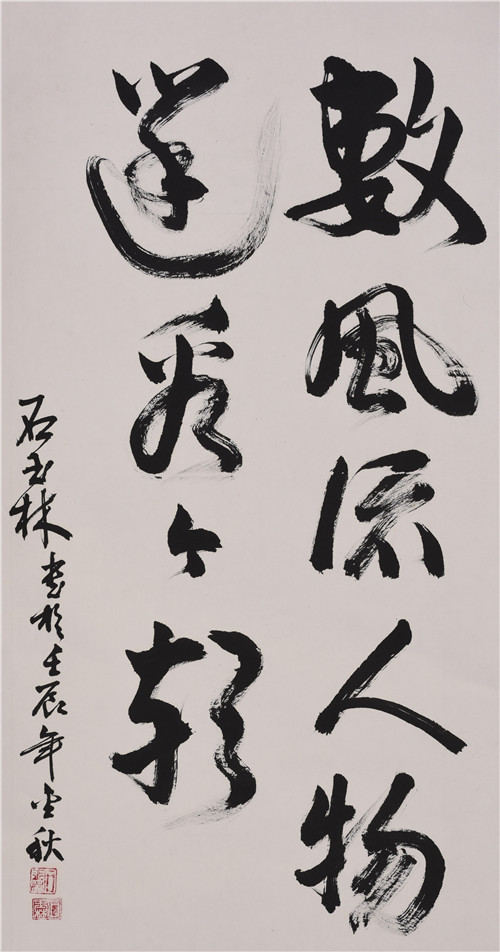 數風流人物
還看今朝
石玉林書於壬辰年金秋